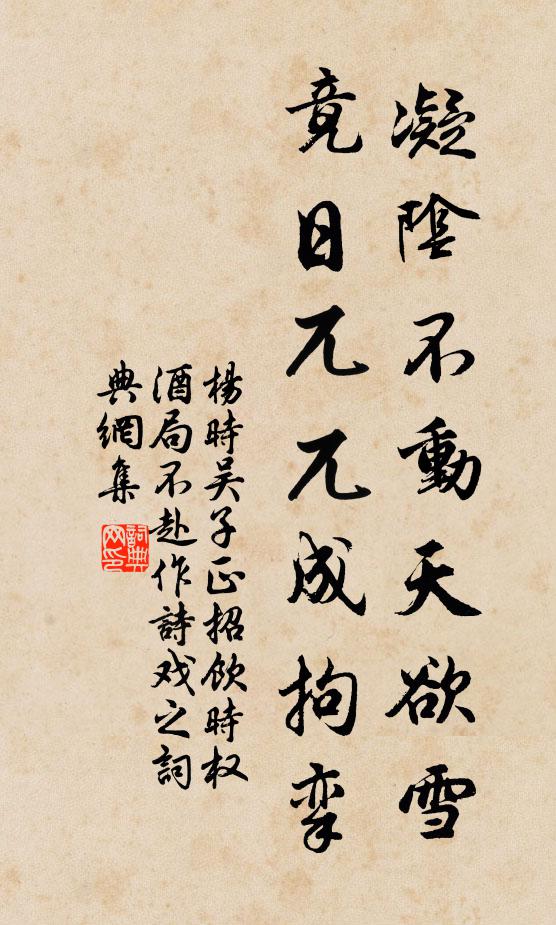 凝陰不動天欲雪
竟日兀兀成拘挛
楊時吴子正招飲時权
酒局不赴作詩戏之詞
典網集
詞典
网印